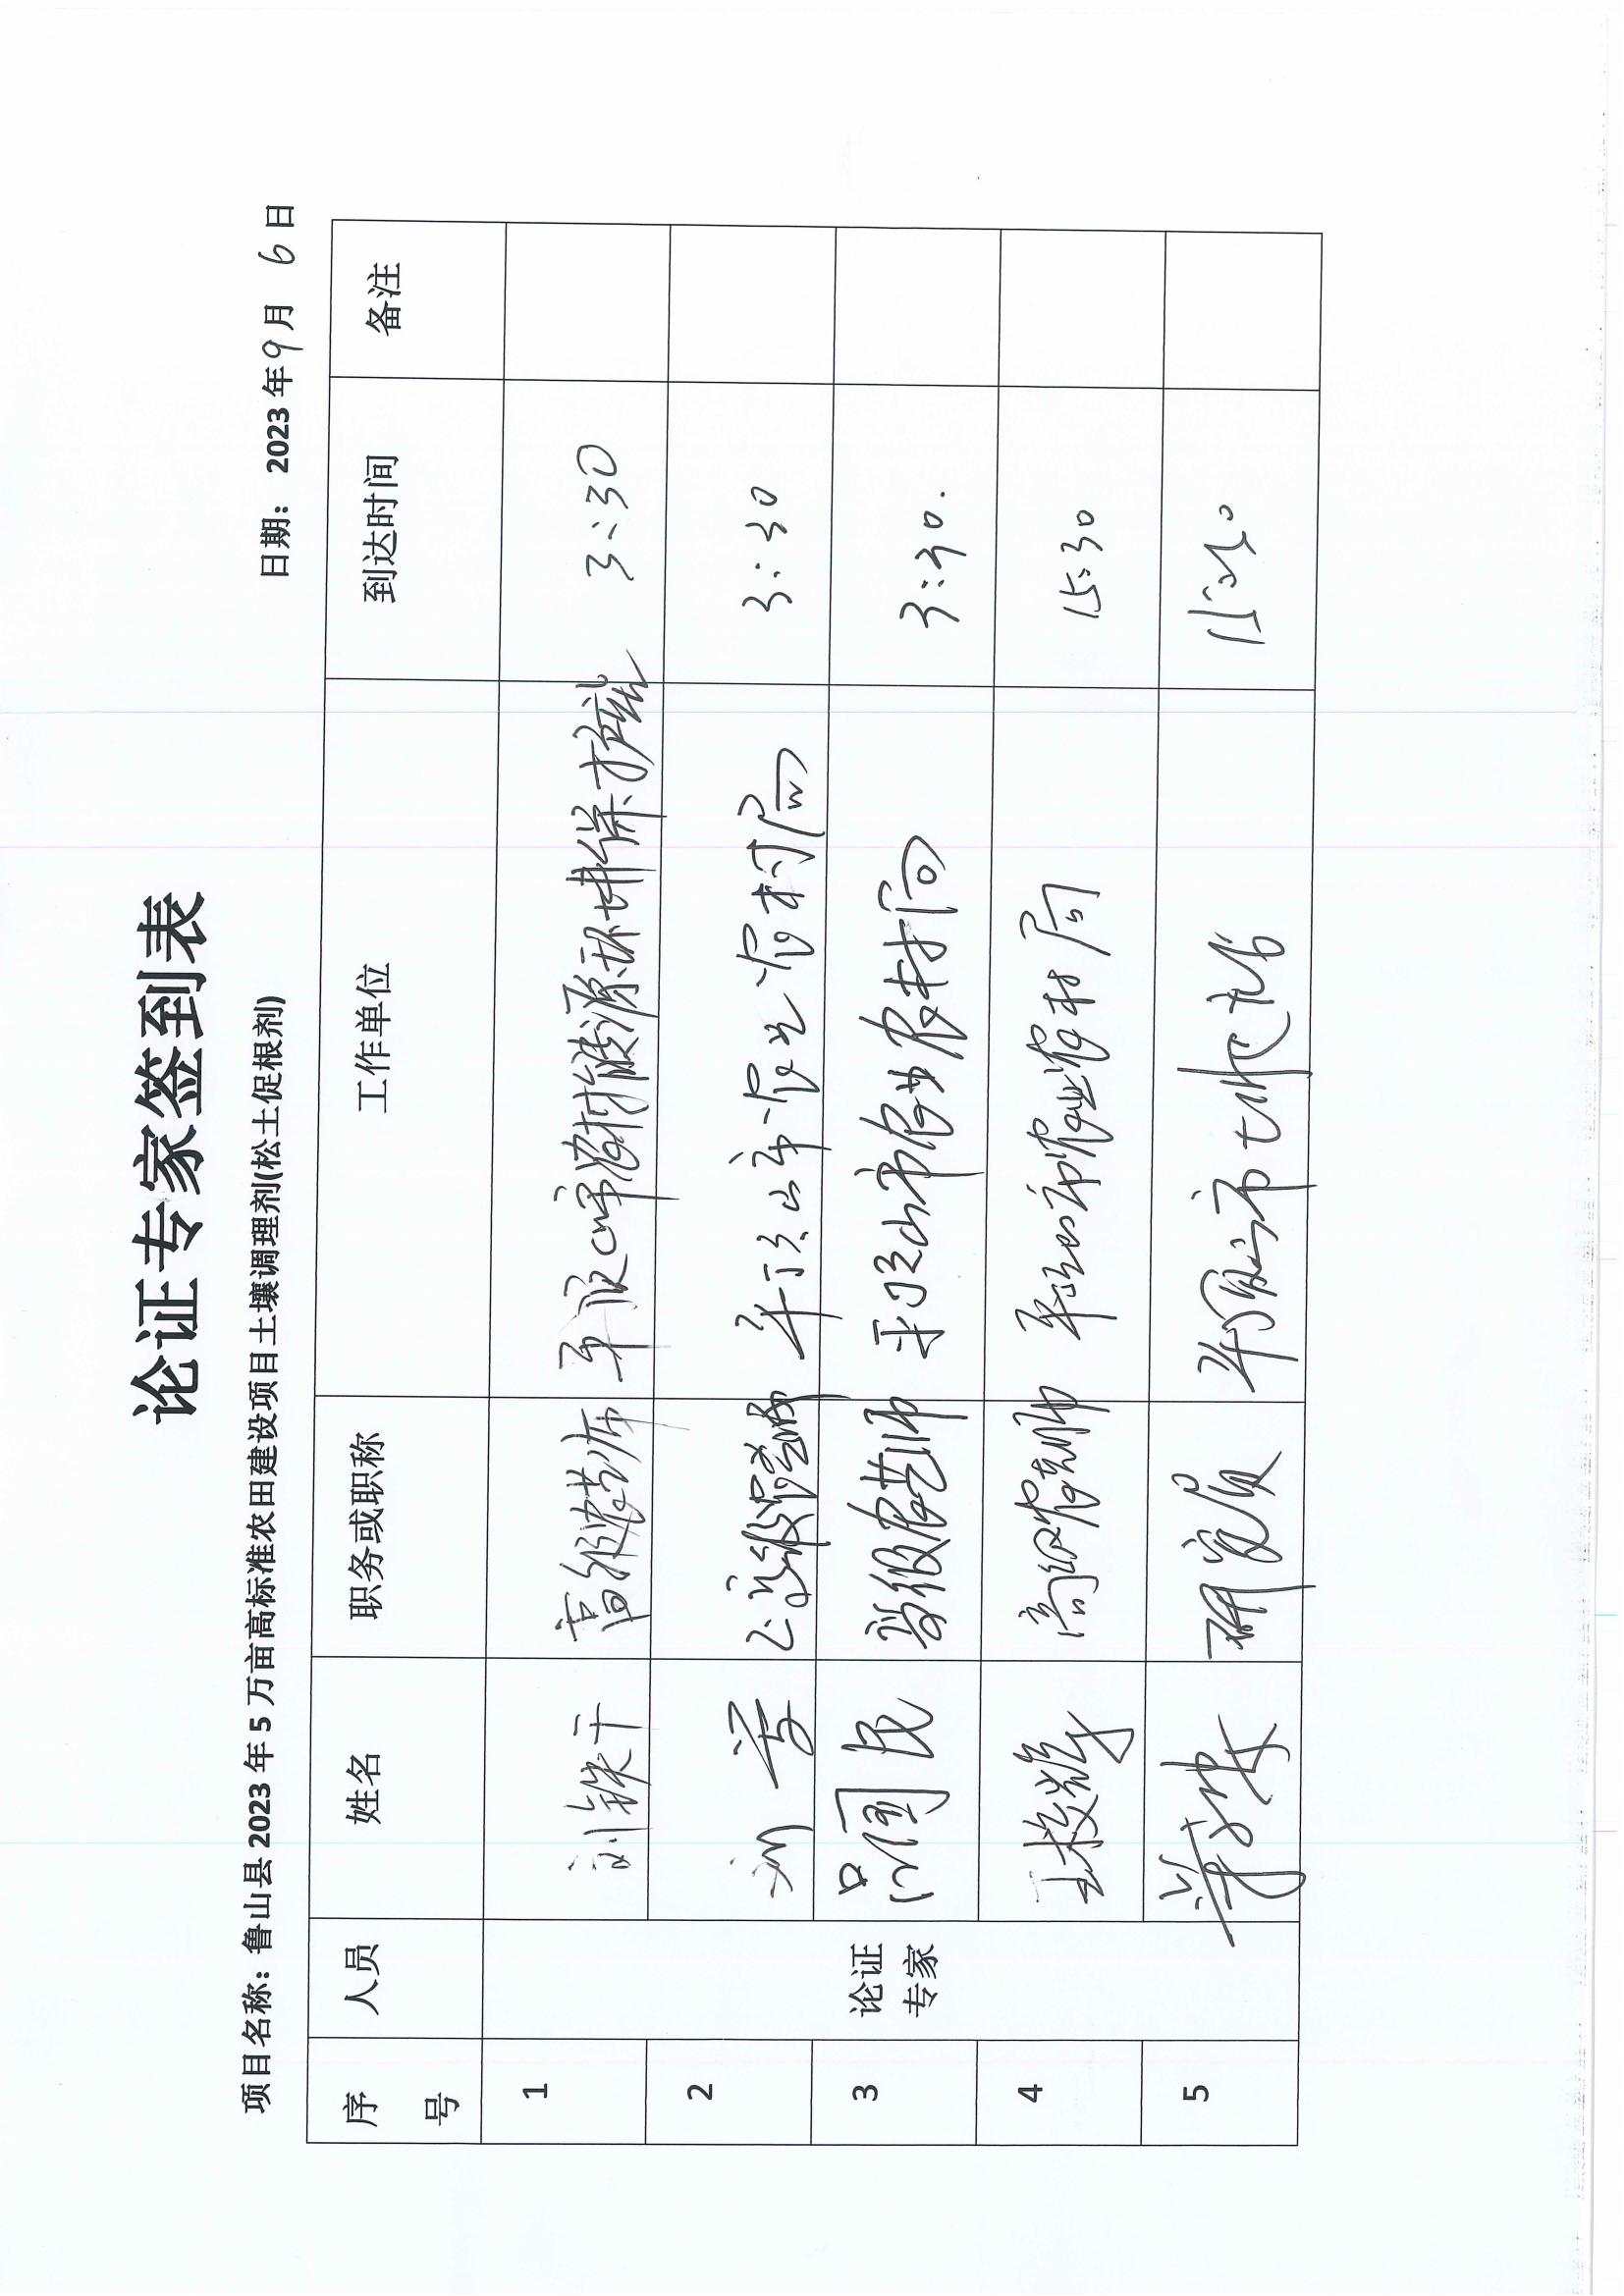 论证专家签到表
项目名称：鲁山县 2023 年 5 万亩高标准农田建设项目土壤调理剂(松土促根剂)
日期： 2023 年 9 月 6 日
序号 人员 姓名 职务或职称 工作单位 到达时间 备注
论证专家
1 刘铁干 高级农艺师 平顶山市农村能源环境保护站 3:30
2 刘 正高级农艺师 平顶山市农业农村局 3:30
3 吕国民 高级农艺师 平顶山市农业农村局 3:30.
4 王俊 高级农艺师 平顶山市农业农村局 15:30
5 研究员 平顶山市 15:30